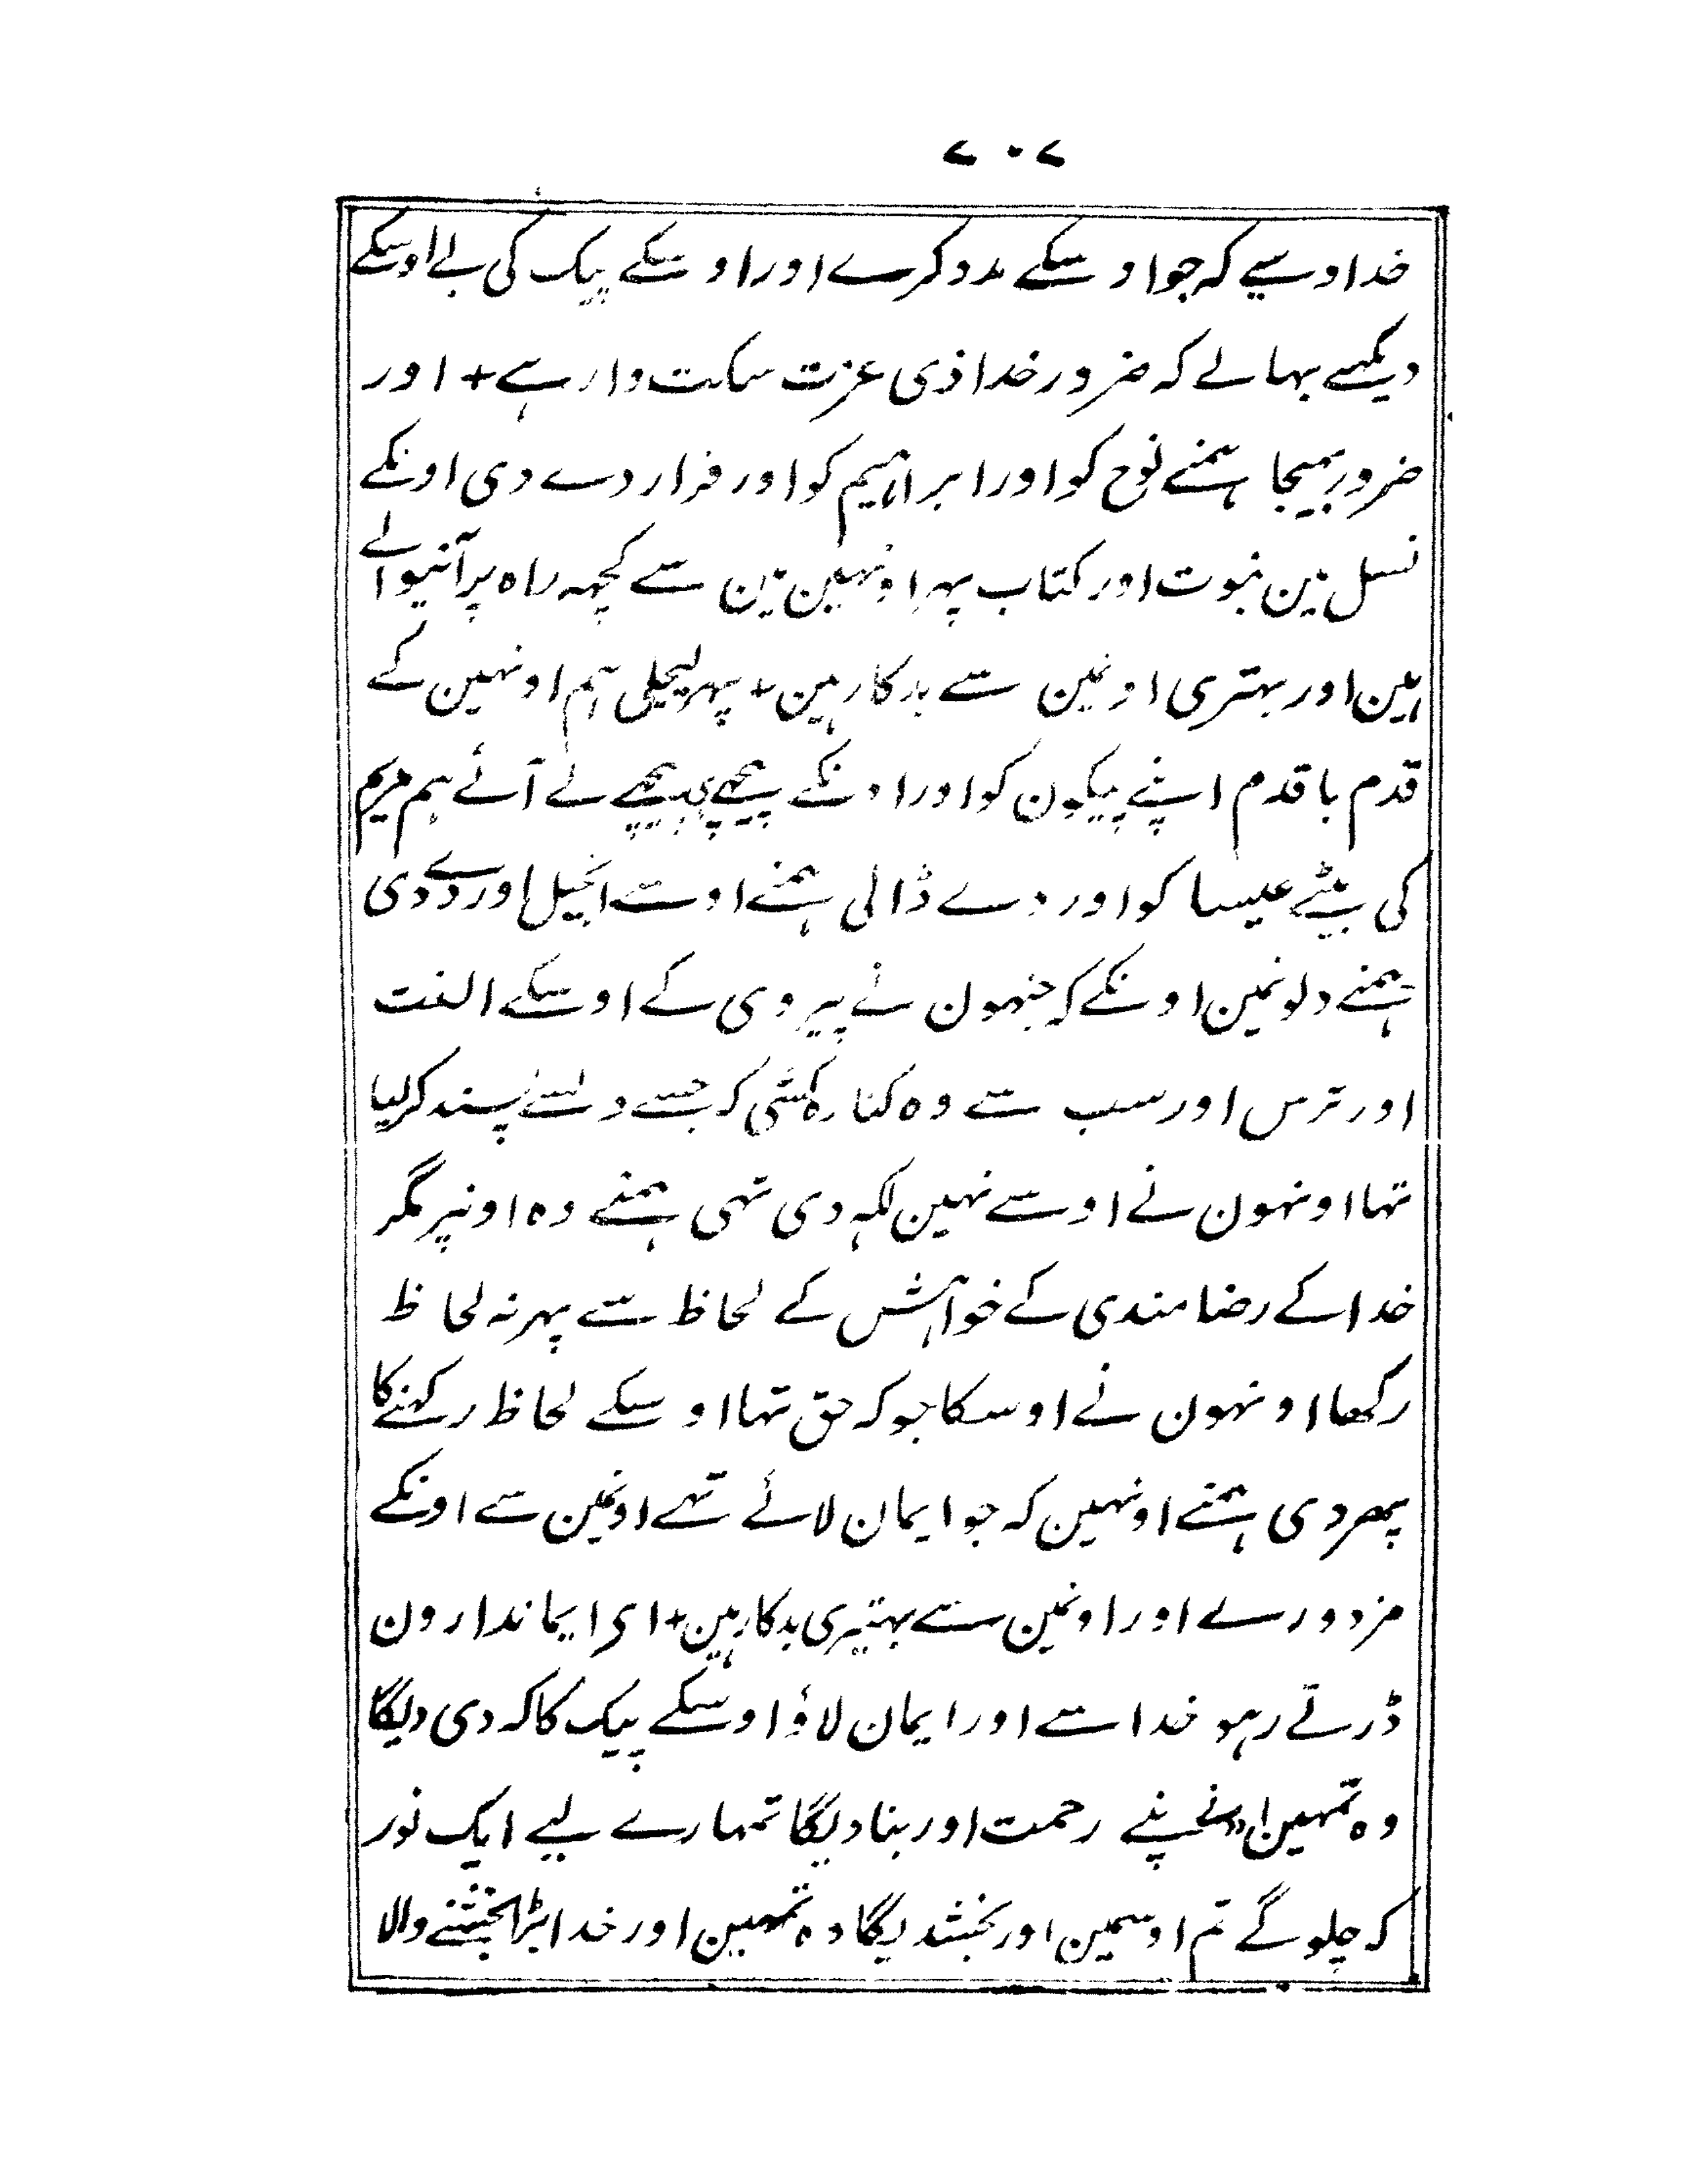 ۷۰۷
خدا وسیے کہ جو اوسکے مدد کرے اور اوسکے پیک کی بے اوسکے
دیکہے بہالے کہ ضرور خدا ذی عزت سکت وار ہے + اور
ضرور بہیجا ہمنے نوح کو اور ابراہیم کو اور قرار دے دی اونکے
نسل مین نبوت اور کتاب پہر اونہین مین سے کچہہ راہ پر آنیوالے
ہین اور بہتری اونمین سے بدکار ہین + پہر لیچلی ہم اونہین کے
قدم با قدم اپنے پیکون کو اور اونکے پیچہے پیچہے لے آئے ہم مریم
کی بیٹے عیسا کو اور دے ڈالی ہمنے اوسے انجیل اور دے دی
ہمنے دلونمین اونکے کہ جنہون نے پیروی کے اوسکے الفت
اور ترس اور سب سے وہ کنارہ کشی کہ جسے دلسے پسند کرلیا
تہا اونہون نے اوسے نہین لکہہ دی تہی ہمنے وہ اونپر مگر
خدا کے رضامندی کے خواہش کے لحاظ سے پہر نہ لحاظ
رکھا اونہون نے اوسکا جو کہ حق تہا اوسکے لحاظ رکہنے کا
پھر دی ہمنے اونہین کہ جو ایمان لائے تہے اونمین سے اونکے
مزدورے اور اونمین سے بہتیری بدکار ہین + ای ایماندارون
ڈرتے رہو خدا سے اور ایمان لاؤ اوسکے پیک کا کہ دی دیگا
وہ تمہین اپنے رحمت اور بنا دیگا تمہارے لیے ایک نور
کہ چلو گے تم اوسمین اور بخشدیگا وہ تمہین اور خدا بڑا بخشنے والا